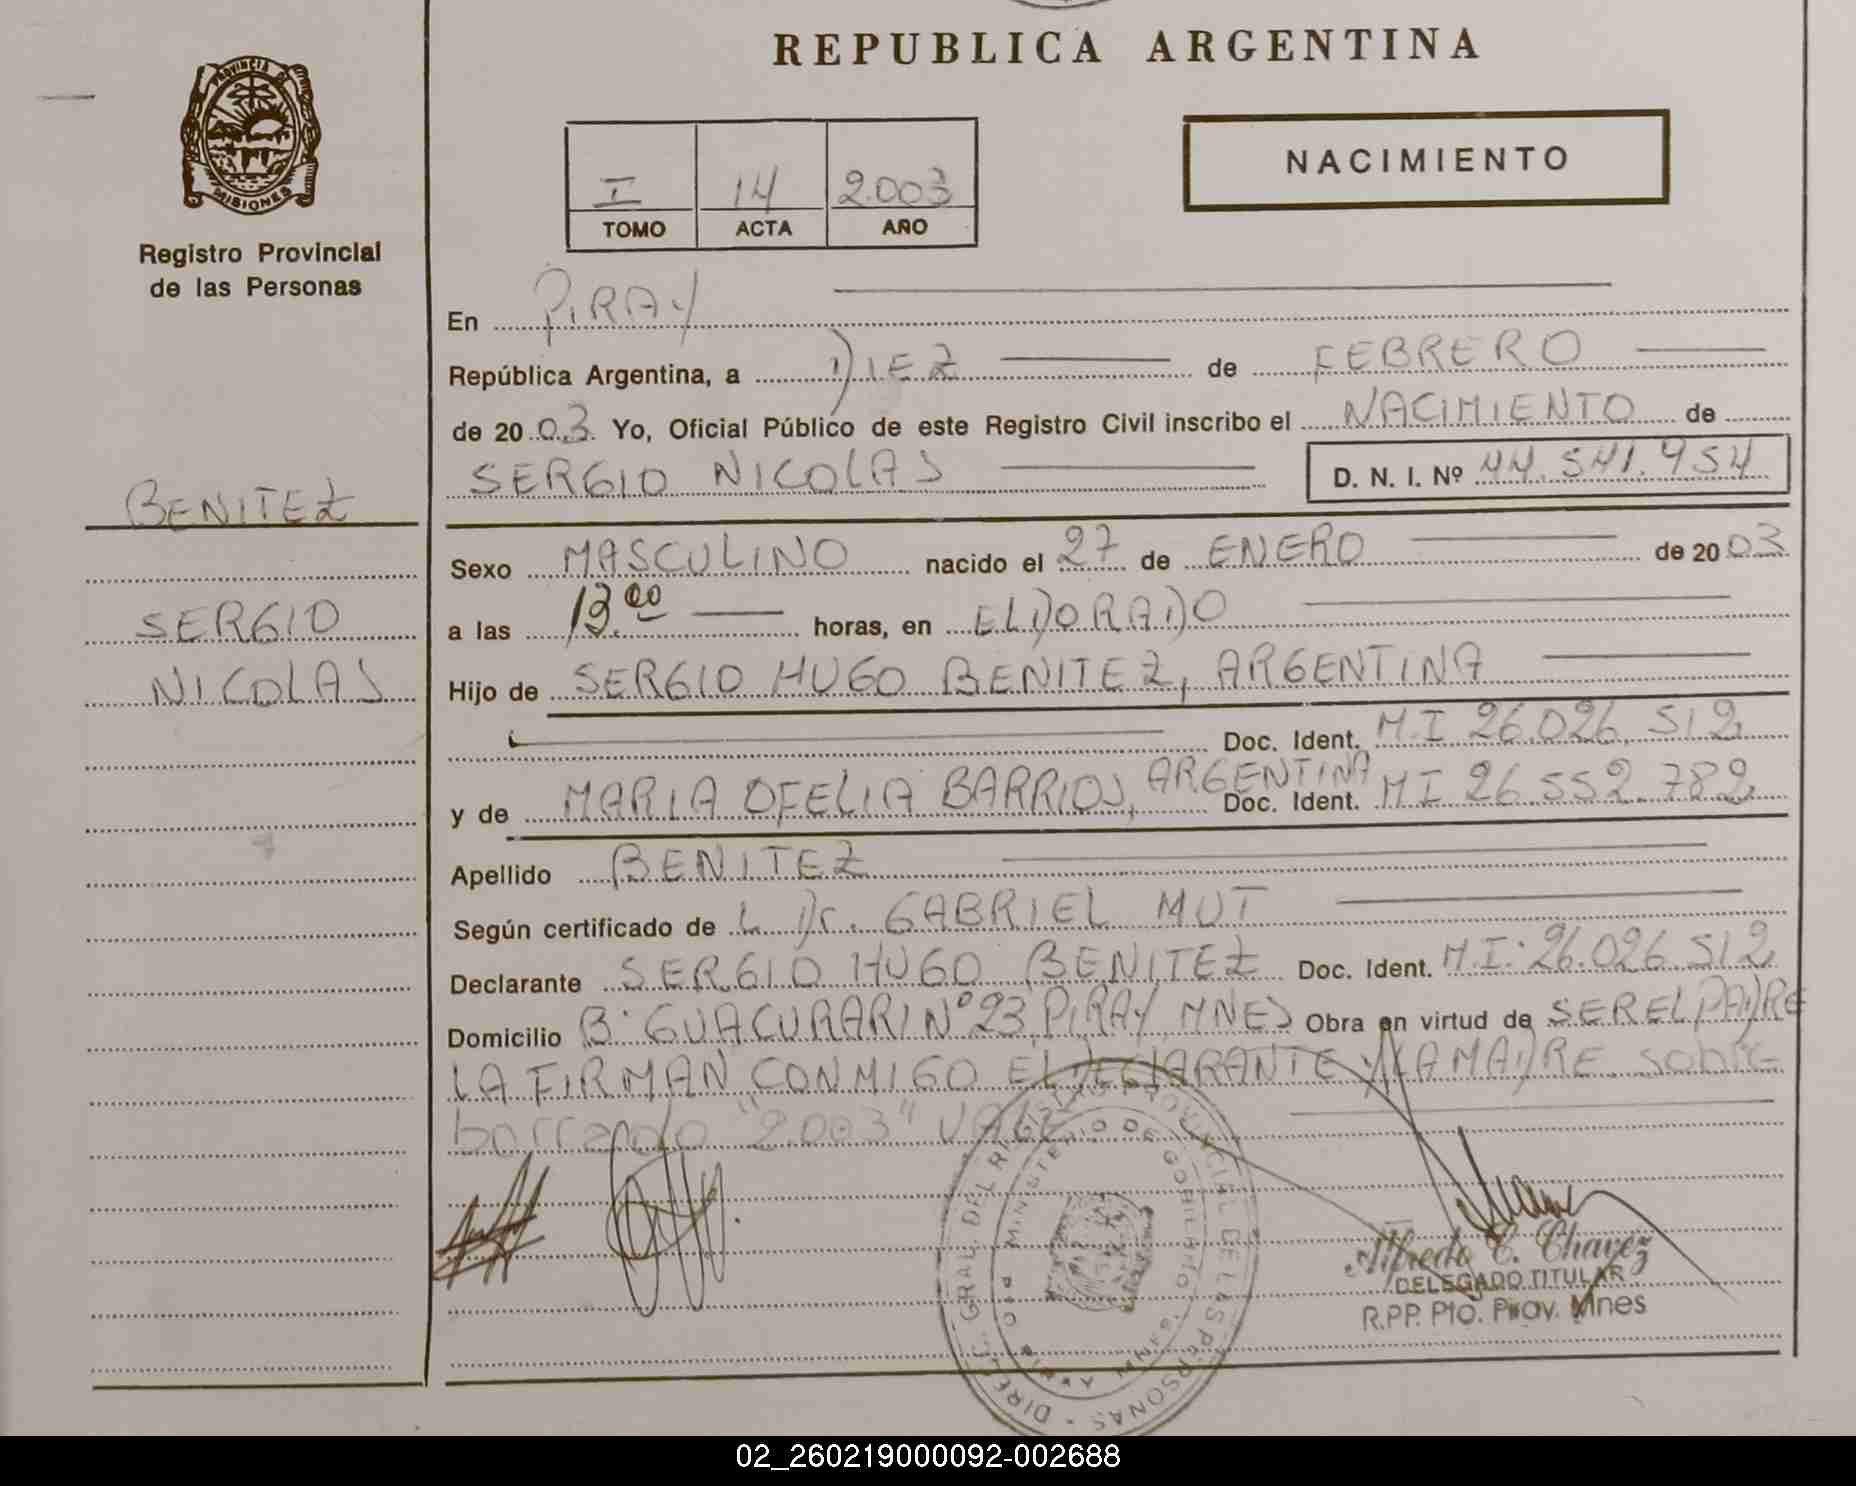 REPUBLICA ARGENTINA
PROVINCIA DE
MISIONES
Registro Provincial
de las Personas
NACIMIENTO
I 14 2.003
TOMO ACTA AÑO
En PIRAY
República Argentina, a DIEZ de FEBRERO
de 2003 Yo, Oficial Público de este Registro Civil inscribo el NACIMIENTO de
SERGIO NICOLAS D. N. I. Nº 44.541.954
BENITEZ
SERGIO
NICOLAS
Sexo MASCULINO nacido el 27 de ENERO de 2003
a las 13.00 horas, en ELDORADO
Hijo de SERGIO HUGO BENITEZ, ARGENTINA
Doc. Ident. M.I 26.026.512
y de MARIA OFELIA BARRIOS, ARGENTINA Doc. Ident. MI 26.552.782
Apellido BENITEZ
Según certificado de L Dr. GABRIEL MUT
Declarante SERGIO HUGO BENITEZ Doc. Ident. M.I: 26.026.512
Domicilio Bº GUACURARI Nº 23, PIRAY MNES Obra en virtud de SER EL PADRE
LA FIRMAN CONMIGO EL DECLARANTE Y LA MADRE. sobre
borrando "2.003" VALE
DIREC. GRAL. DEL REGISTRO PROVINCIAL DE LAS PERSONAS
MINISTERIO DE GOBIERNO
Alfredo E. Chavez
DELEGADO TITULAR
R.P.P. Pto. Piray. Mnes
02_260219000092-002688